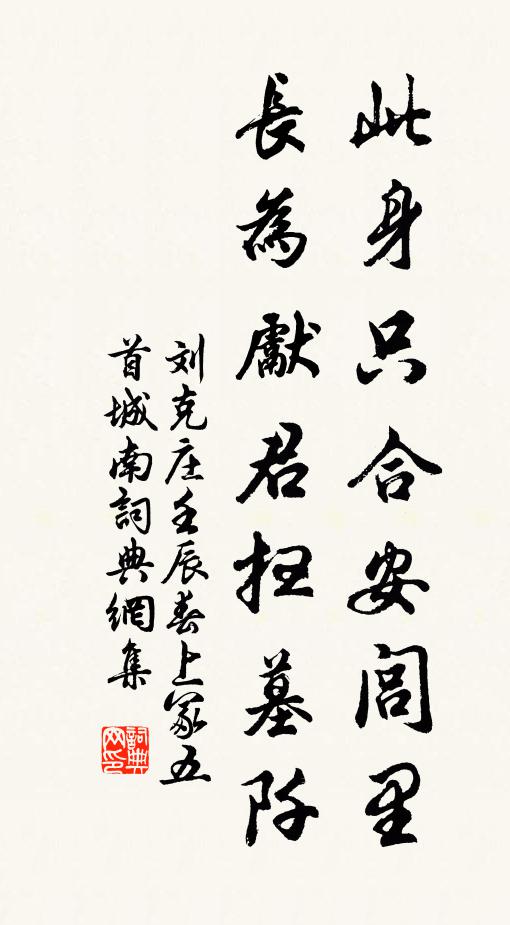 此身只合安閭里
長為獻君扫墓阡
刘克庄壬辰春上冢五
首城南詞典網集
詞典网印